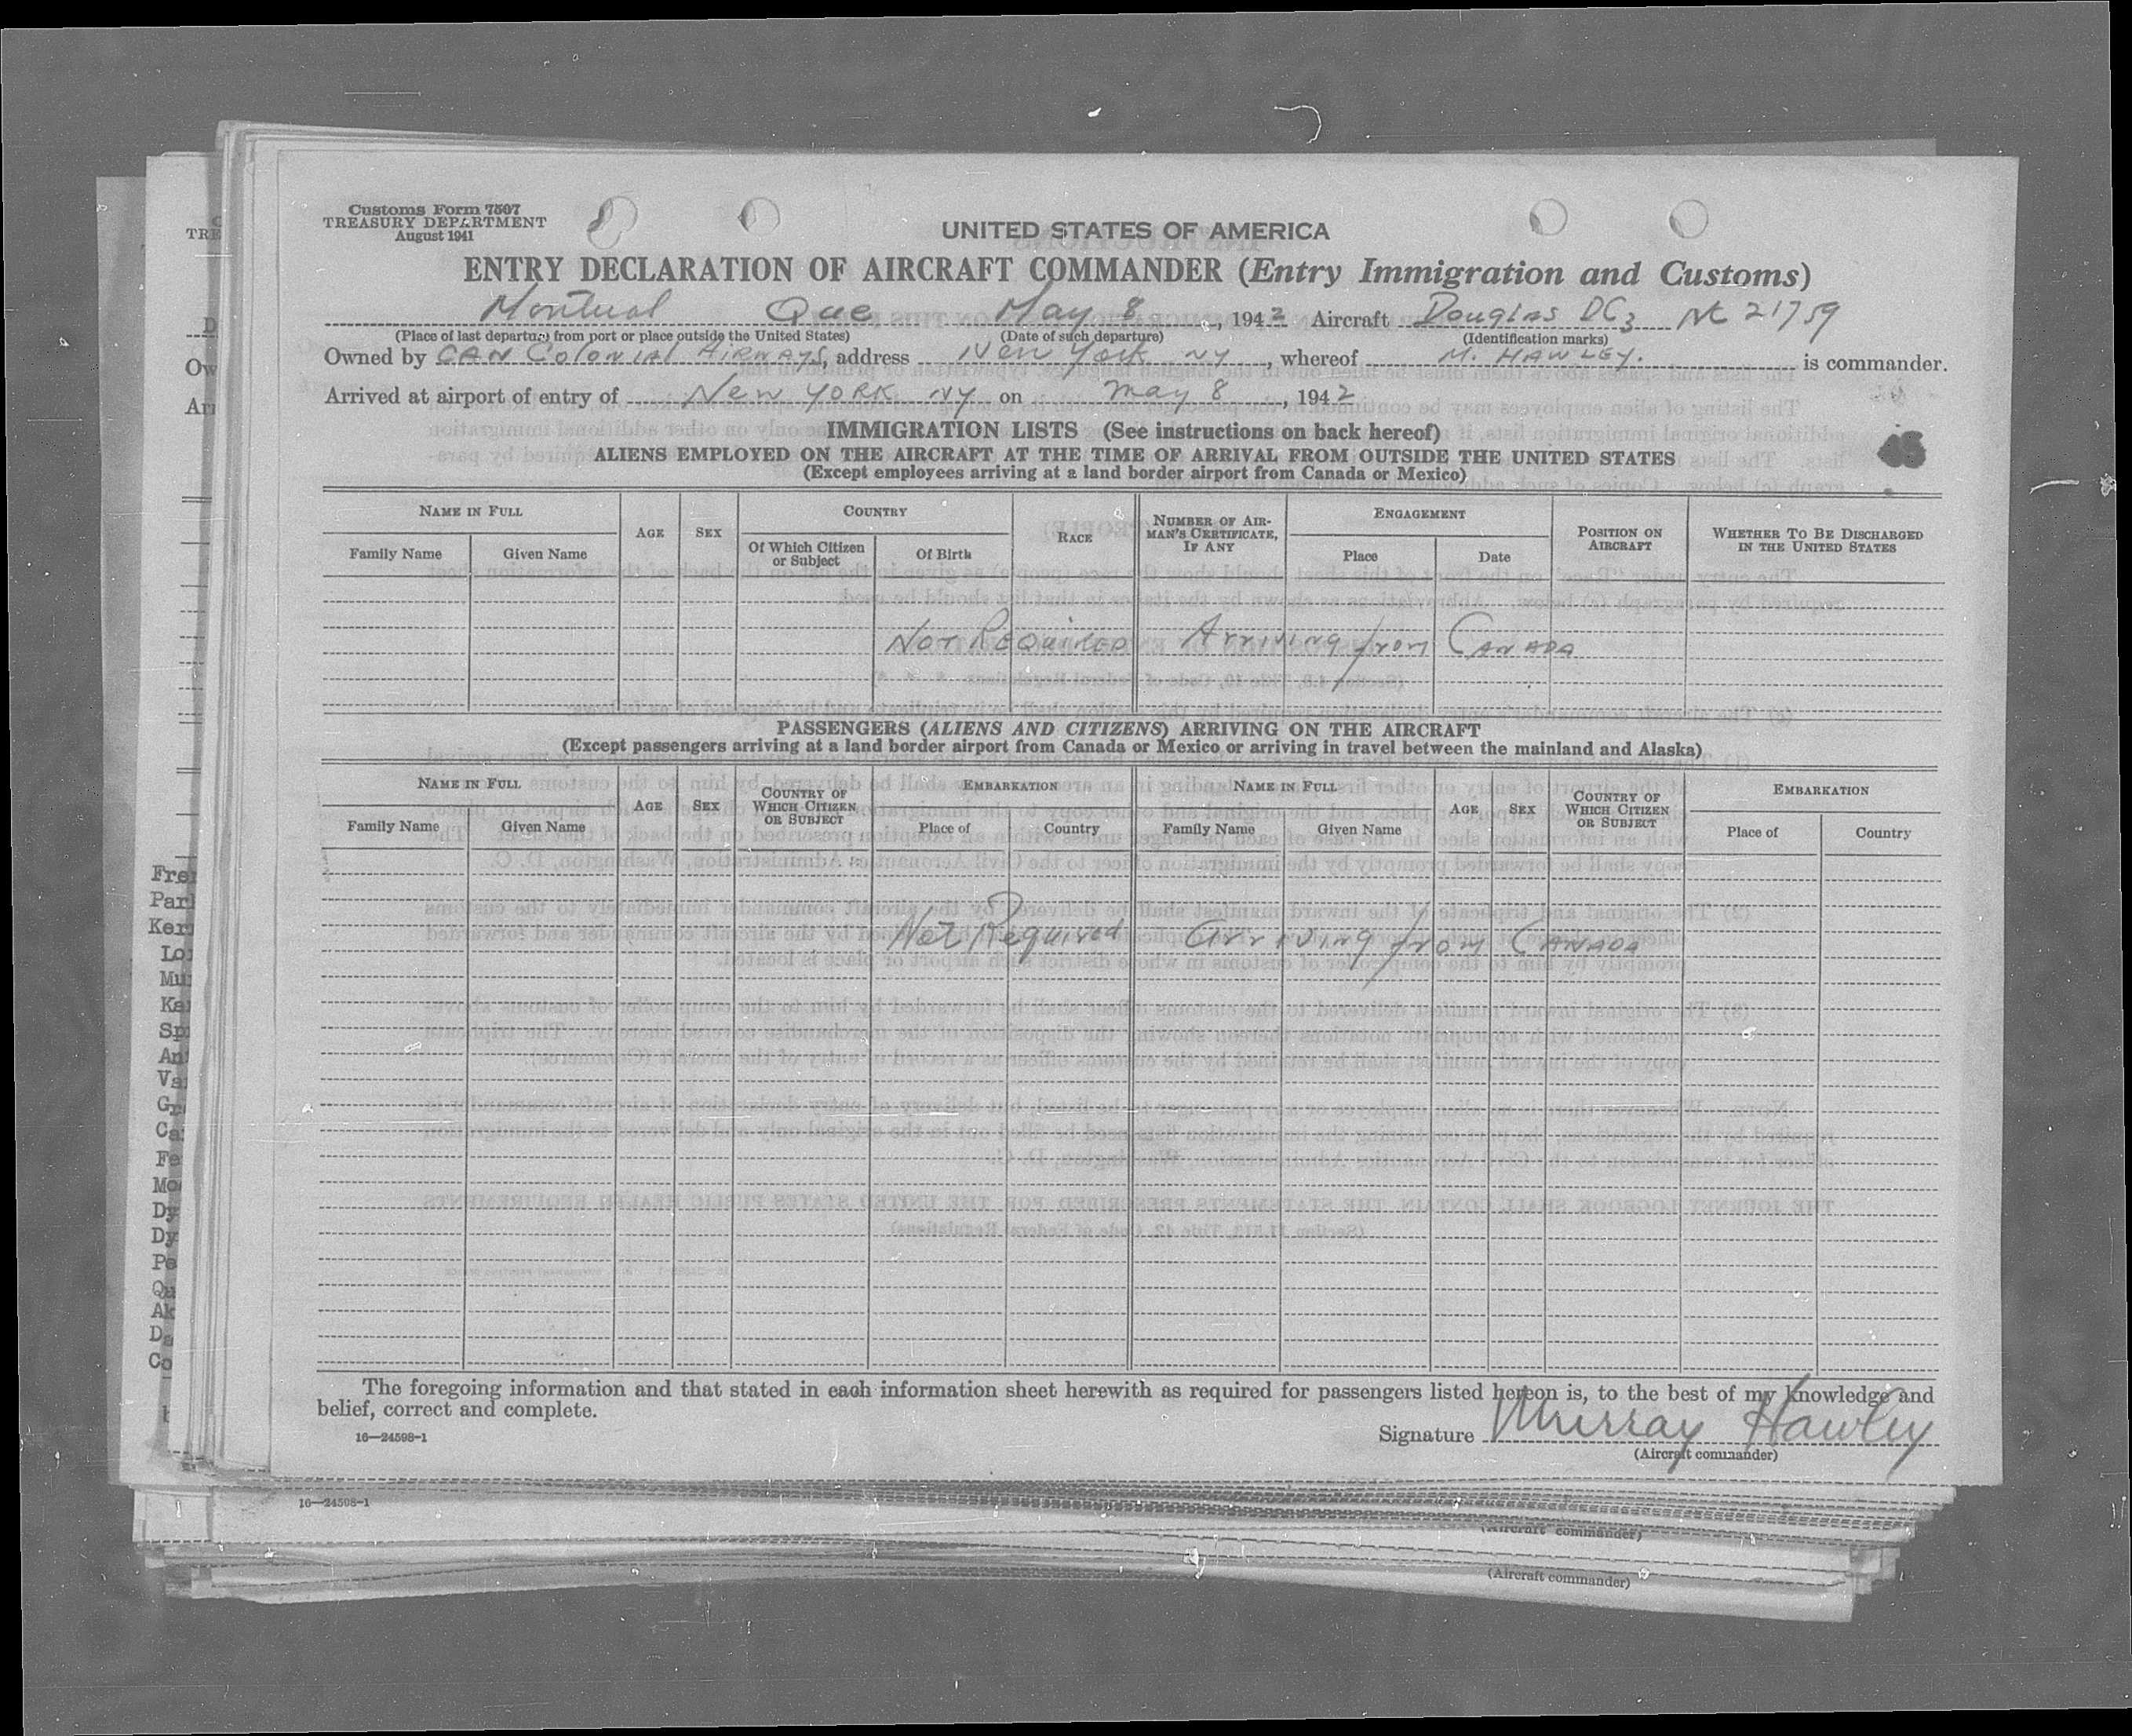 Customs Form 7507
TREASURY DEPARTMENT
August 1941
UNITED STATES OF AMERICA
ENTRY DECLARATION OF AIRCRAFT COMMANDER (Entry Immigration and Customs)
Montreal Que May 8, 1942 Aircraft Douglas DC3 NC 21759
(Place of last departure from port or place outside the United States) (Date of such departure) (Identification marks)
Owned by CAN Colonial Airways, address New York NY, whereof M. HAWLEY. is commander.
Arrived at airport of entry of New York NY on May 8, 1942
IMMIGRATION LISTS (See instructions on back hereof)
ALIENS EMPLOYED ON THE AIRCRAFT AT THE TIME OF ARRIVAL FROM OUTSIDE THE UNITED STATES
(Except employees arriving at a land border airport from Canada or Mexico)
NAME IN FULL AGE SEX COUNTRY RACE NUMBER OF AIRMAN'S CERTIFICATE, IF ANY ENGAGEMENT POSITION ON AIRCRAFT WHETHER TO BE DISCHARGED IN THE UNITED STATES
Family Name Given Name Of Which Citizen or Subject Of Birth Place Date
Not Required Arriving from Canada
PASSENGERS (ALIENS AND CITIZENS) ARRIVING ON THE AIRCRAFT
(Except passengers arriving at a land border airport from Canada or Mexico or arriving in travel between the mainland and Alaska)
NAME IN FULL AGE SEX COUNTRY OF WHICH CITIZEN OR SUBJECT EMBARKATION NAME IN FULL AGE SEX COUNTRY OF WHICH CITIZEN OR SUBJECT EMBARKATION
Family Name Given Name Place of Country Family Name Given Name Place of Country
Not Required Arriving from Canada
The foregoing information and that stated in each information sheet herewith as required for passengers listed hereon is, to the best of my knowledge and
belief, correct and complete.
16—24598-1
Signature Murray Hawley
(Aircraft commander)
16—24598-1
(Aircraft commander)
(Aircraft commander)